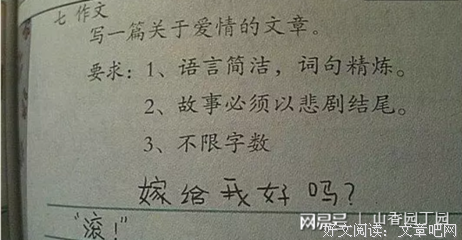 七 作文
写一篇关于爱情的文章。
要求：1、语言简洁，词句精炼。
2、故事必须以悲剧结尾。
3、不限字数
嫁给我好吗？
“滚！”
网易号 | 山香园丁园
好文阅读：文章吧网